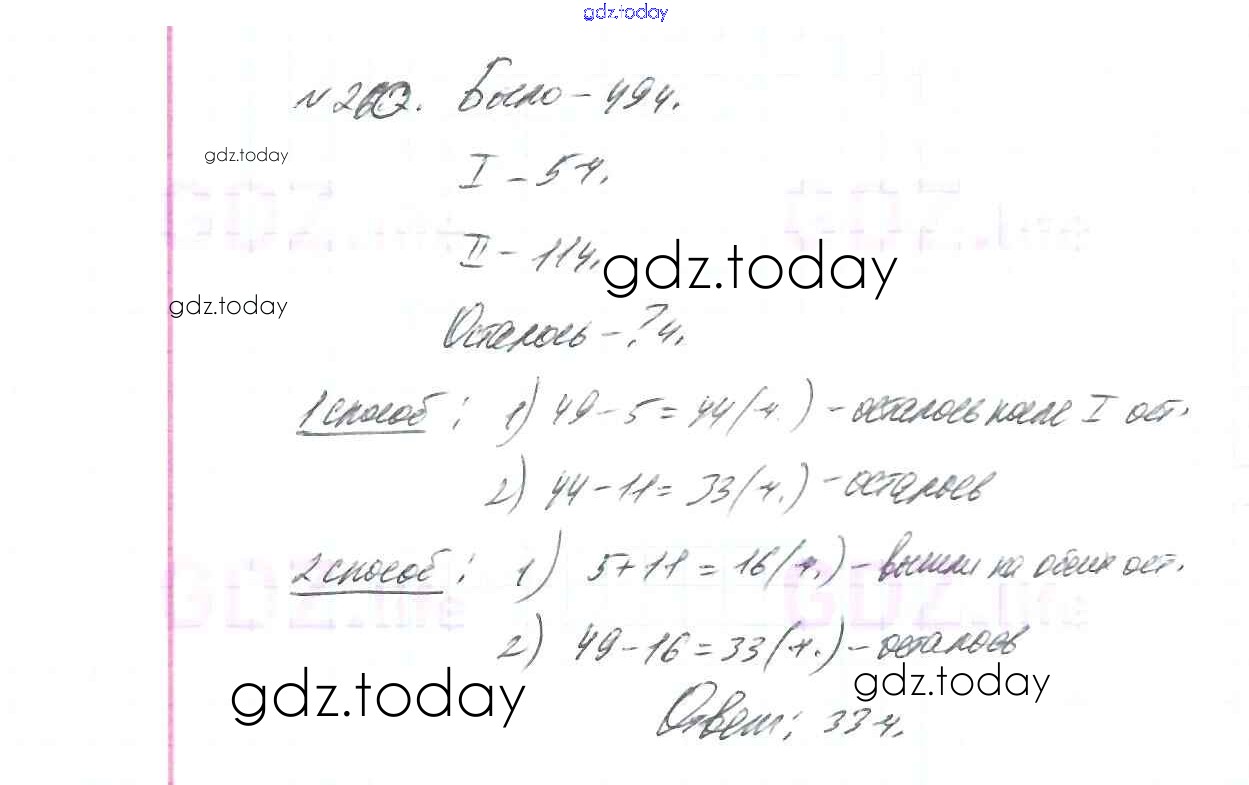 gdz.today
№ 260. Было – 49 ч.
gdz.today
I – 5 ч.
II – 11 ч.
gdz.today
gdz.today
Осталось – ? ч.
1 способ: 1) 49 – 5 = 44 (ч.) – осталось после I ост.
2) 44 – 11 = 33 (ч.) – осталось
2 способ: 1) 5 + 11 = 16 (ч.) – вышли на обеих ост.
2) 49 – 16 = 33 (ч.) – осталось
gdz.today
gdz.today
Ответ: 33 ч.